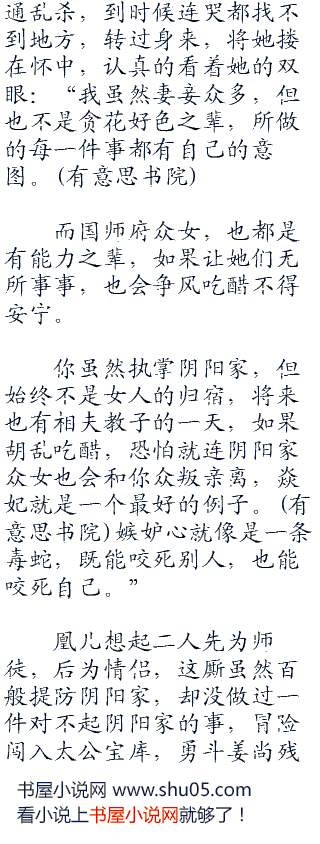 通乱杀，到时候连哭都找不
到地方，转过身来，将她搂
在怀中，认真的看着她的双
眼：“我虽然妻妾众多，但
也不是贪花好色之辈，所做
的每一件事都有自己的意
图。(有意思书院)
而国师府众女，也都是
有能力之辈，如果让她们无
所事事，也会争风吃醋不得
安宁。
你虽然执掌阴阳家，但
始终不是女人的归宿，将来
也有相夫教子的一天，如果
胡乱吃醋，恐怕就连阴阳家
众女也会和你众叛亲离，焱
妃就是一个最好的例子。(有
意思书院)嫉妒心就像是一条
毒蛇，既能咬死别人，也能
咬死自己。”
凰儿想起二人先为师
徒，后为情侣，这厮虽然百
般提防阴阳家，却没做过一
件对不起阴阳家的事，冒险
闯入太公宝库，勇斗姜尚残
书屋小说网 www.shu05.com
看小说上书屋小说网就够了！